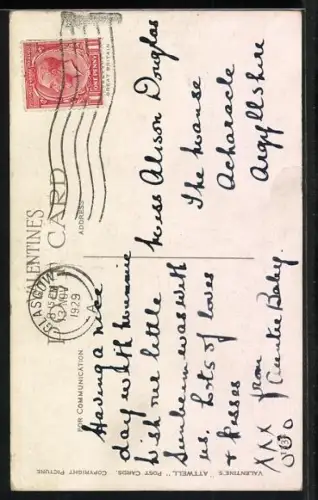 VALENTINE'S "ATTWELL" POST CARDS. COPYRIGHT PICTURE.
VALENTINES
CARD
FOR COMMUNICATION
ADDRESS
ONE PENNY
GREAT BRITAIN
GLASGOW
NOV
1929
A
Having a nice
day with Mummie
Wish me little
Sunbeam was with
us. Lots of loves
+ kisses
XXX from
Auntie Baby.
Miss Alison Douglas
The Manse
Acharacle
Argyllshire